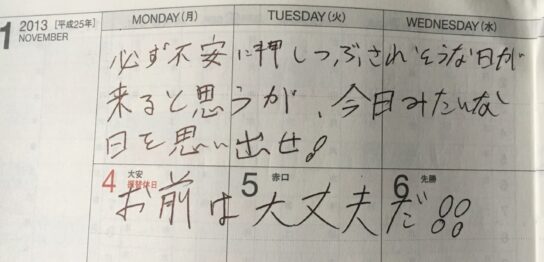 1 2013 [平成25年] NOVEMBER
MONDAY (月) TUESDAY (火) WEDNESDAY (水)
必ず不安に押しつぶされそうな日が
来ると思うが、今日みたいな
日を思い出せ!
4 大安 振替休日 5 赤口 6 先勝
お前は大丈夫だ!!